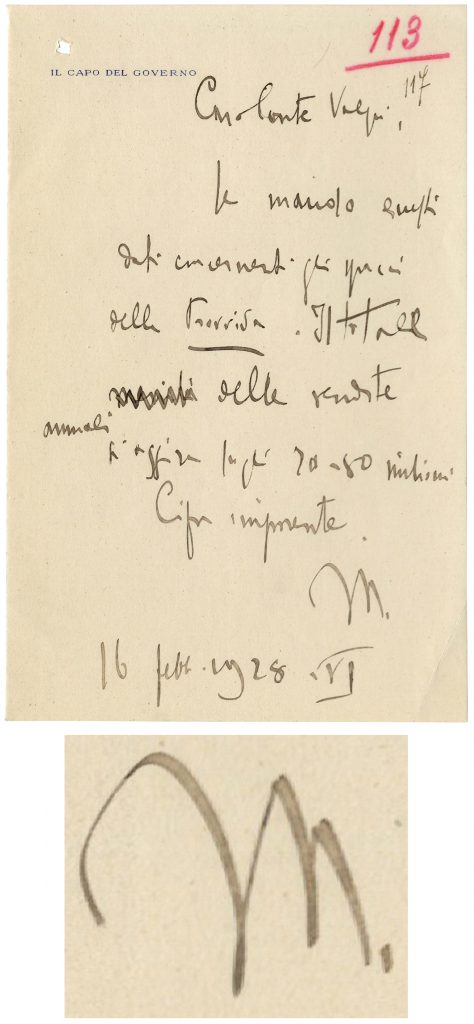 113
IL CAPO DEL GOVERNO
117
Caro Conte Volpi,
Le mando questi
dati concernenti gli
della . Il totale
delle vendite
annuali
si aggira sugli 70-80 milioni
Cifra imponente.
M.
16 febb. 1928 . VI
M.